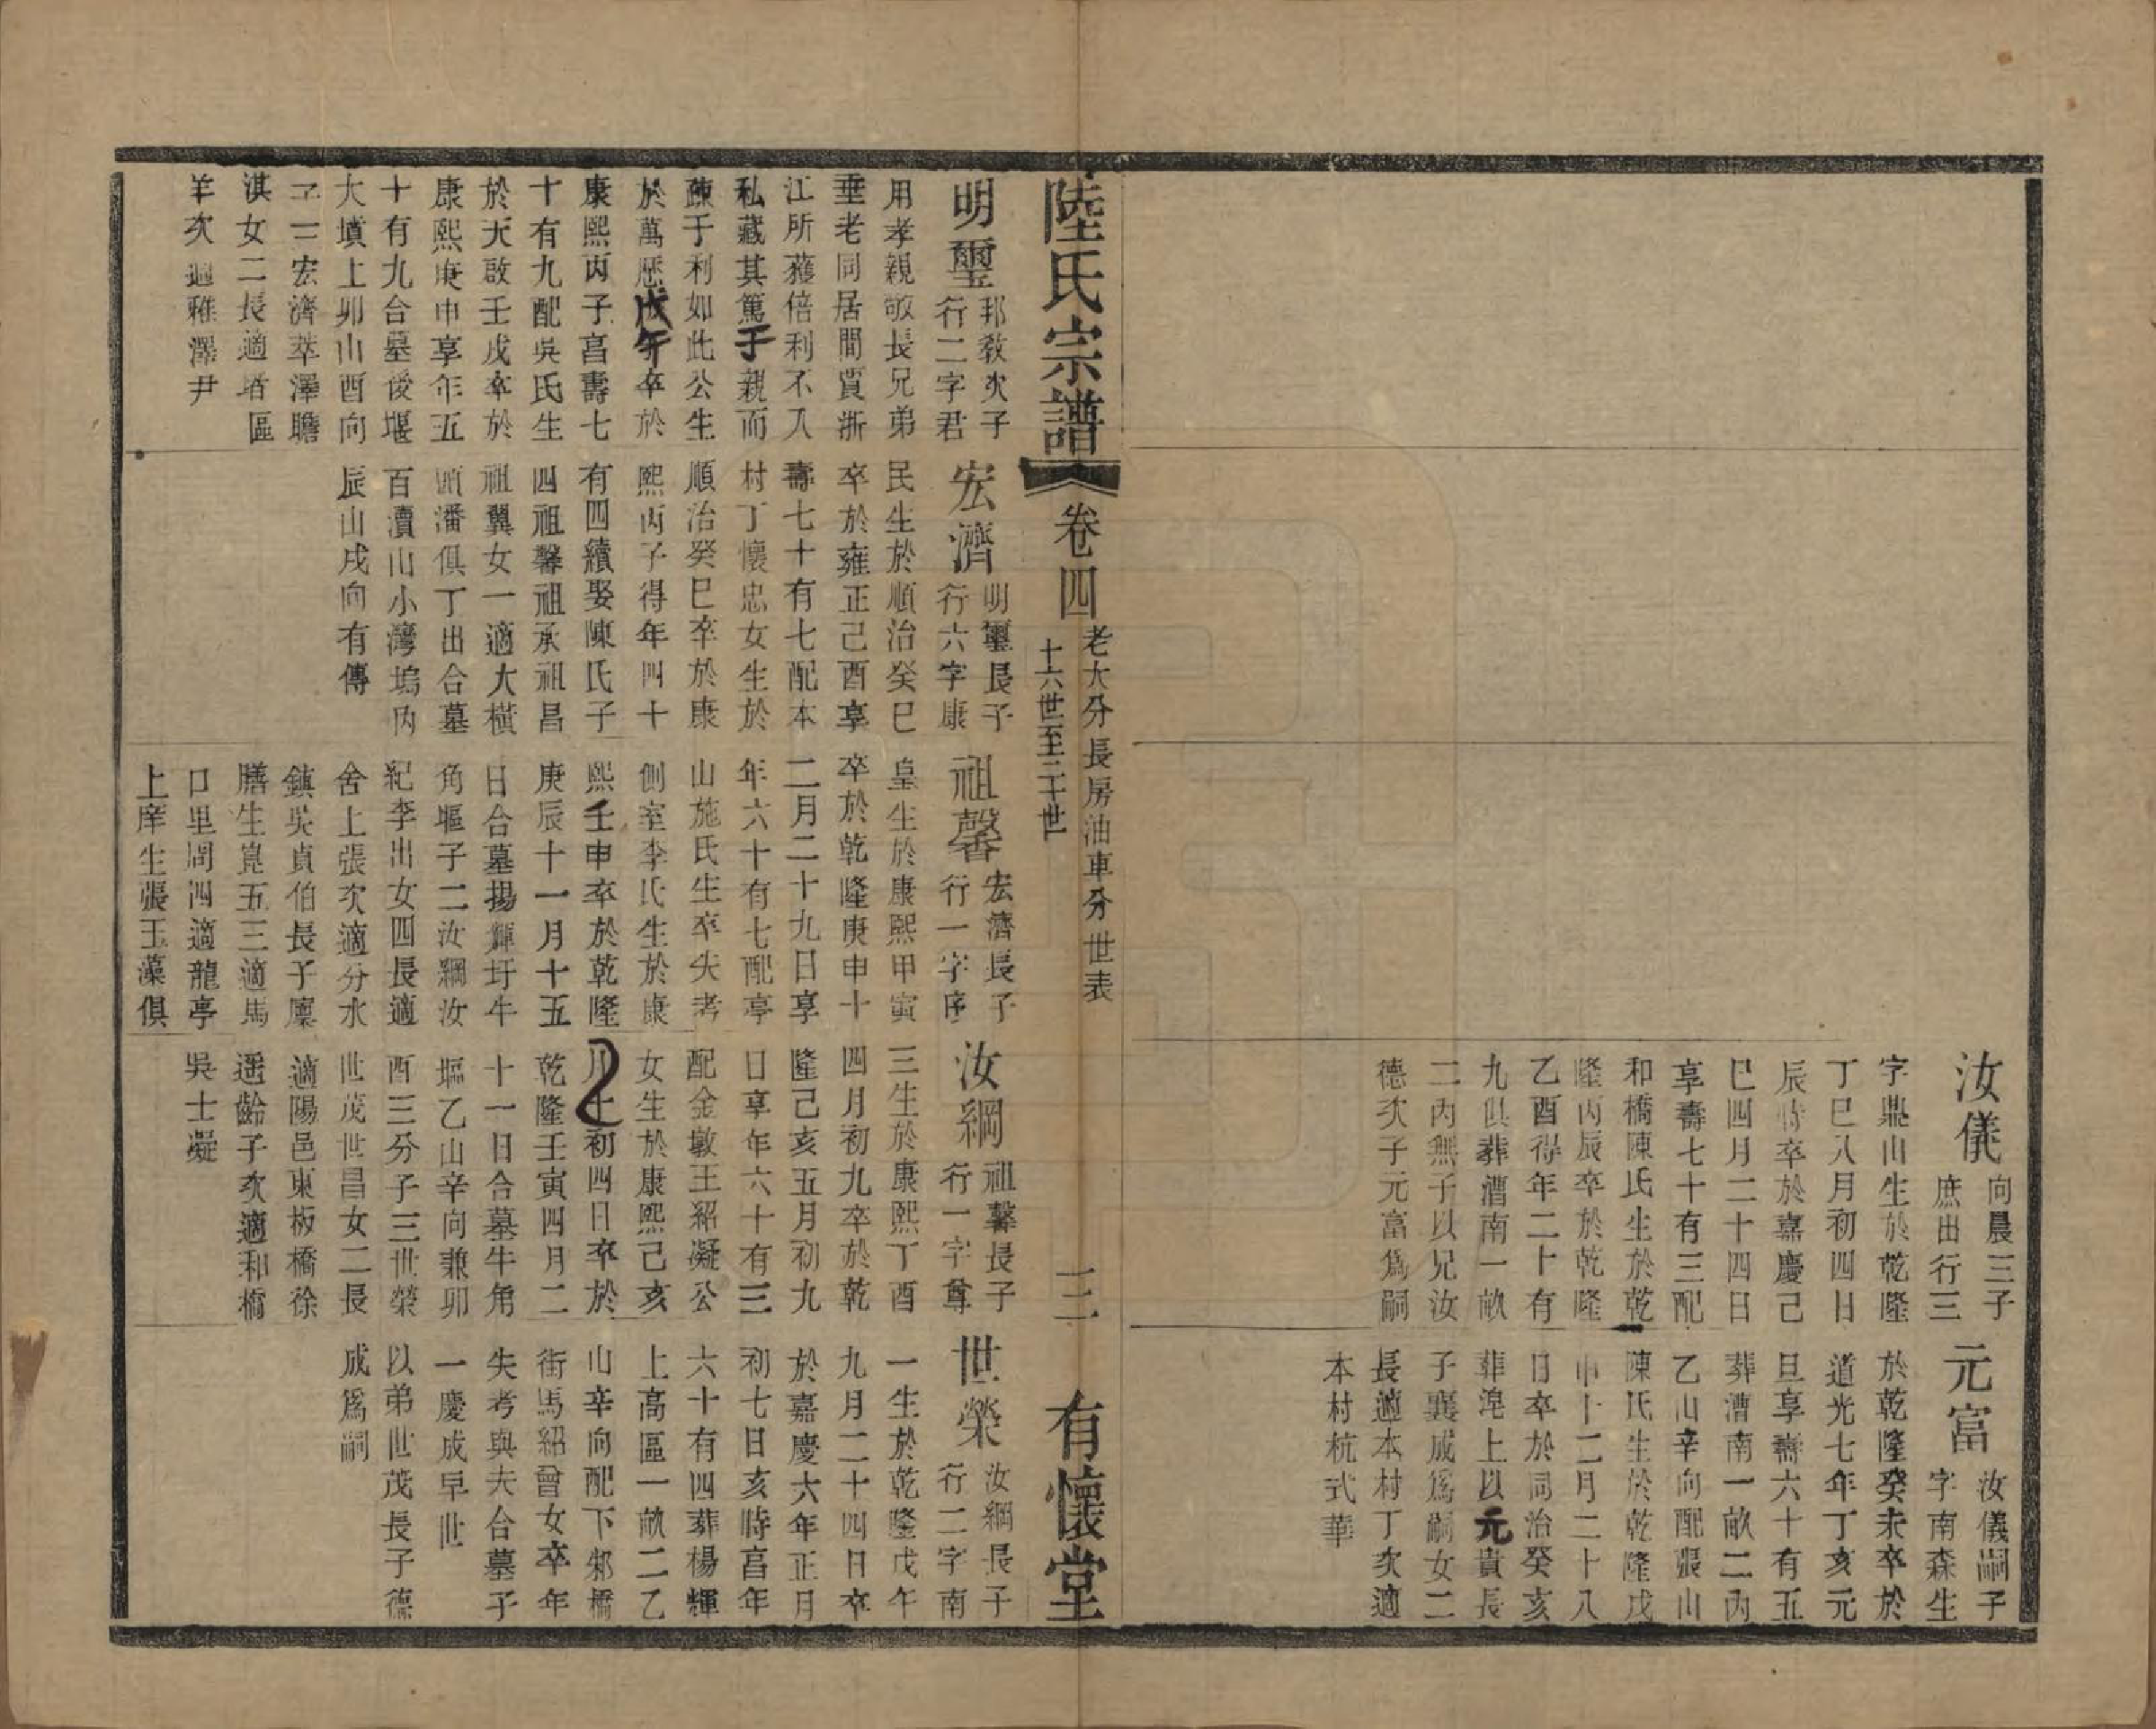 汝儀
向晨三子
庶出行三
字鼎山生於乾隆
丁巳八月初四日
辰時卒於嘉慶己
巳四月二十四日
享壽七十有三配
和橋陳氏生於乾
隆丙辰卒於乾隆
乙酉得年二十有
九俱葬漕南一畝
二丙無子以兄汝
德次子元富爲嗣
元富
汝儀嗣子
字南森生
於乾隆癸未卒於
道光七年丁亥元
旦享壽六十有五
葬漕南一畝二丙
乙山辛向配張山
陳氏生於乾隆戊
申十二月二十八
日卒於同治癸亥
葬滆上以元貴長
子襄成爲嗣女二
長適本村丁次適
本村杭式華
陸氏宗譜
卷四
老大分長房油車分世表
十六世至二十世
三
有懷堂
明璽
邦教次子
行二字君
用孝親敬長兄弟
垂老同居間賈浙
江所獲倍利不入
私藏其篤于親而
疎于利如此公生
於萬歷戊午卒於
康熙丙子亯壽七
十有九配吳氏生
於天啟壬戌卒於
康熙庚申享年五
十有九合墓後堰
大墳上卯山酉向
子二宏濟萃澤贍
淇女二長適堵區
羊次適稚澤尹
宏濟
明璽長子
行六字康
民生於順治癸巳
卒於雍正己酉享
壽七十有七配本
村丁懷忠女生於
順治癸巳卒於康
熙丙子得年四十
有四續娶陳氏子
四祖馨祖承祖昌
祖翼女一適大橫
頭潘俱丁出合墓
百瀆山小灣塢內
辰山戌向有傳
祖馨
宏濟長子
行一字序
皇生於康熙甲寅
卒於乾隆庚申十
二月二十九日享
年六十有七配亭
山施氏生卒失考
側室李氏生於康
熙壬申卒於乾隆
庚辰十一月十五
日合墓揚輝圩牛
角堰子二汝綱汝
紀李出女四長適
舍上張次適分水
鎮吳貞伯長子廩
膳生嵬五三適馬
口里周四適龍亭
上庠生張玉藻俱
汝綱
祖馨長子
行一字尊
三生於康熙丁酉
四月初九卒於乾
隆己亥五月初九
日享年六十有三
配金墩王紹凝公
女生於康熙己亥
月七初四日卒於
乾隆壬寅四月二
十一日合墓牛角
堰乙山辛向兼卯
酉三分子三世榮
世茂世昌女二長
適陽邑東板橋徐
遥齡子次適和橋
吳士凝
世榮
汝綱長子
行二字南
一生於乾隆戊午
九月二十四日卒
於嘉慶六年正月
初七日亥時亯年
六十有四葬楊輝
上高區一畝二乙
山辛向配下邾橋
街馬紹曾女卒年
失考與夫合墓子
一慶成早世
以弟世茂長子德
成爲嗣